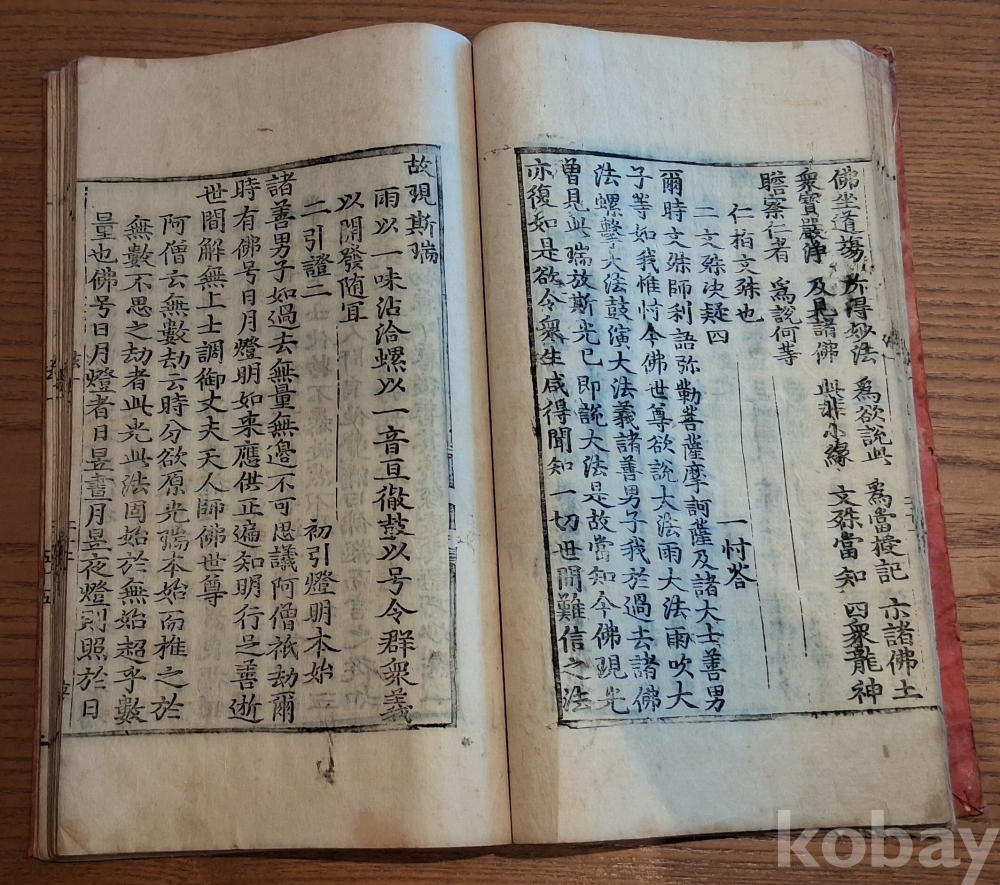 佛坐道場 所得妙法 爲欲說此 爲當授記 示諸佛土
衆寶嚴淨 及見諸佛 此非小緣 文殊當知 四衆龍神
瞻察仁者 爲說何等
仁指文殊也
二文殊决疑四 一忖荅
爾時文殊師利語弥勒菩薩摩訶薩及諸大士善男
子等如我惟忖今佛世尊欲說大法雨大法雨吹大
法螺擊大法鼓演大法義諸善男子我於過去諸佛
曾見此瑞放斯光已即說大法是故當知今佛現光
亦復如是欲令衆生咸得聞知一切世間難信之法
故現斯瑞
雨以一味沾洽螺以一音亘徹鼓以号令群衆義
以開發随冝
二引證二 初引燈明本始
諸善男子如過去無量無邊不可思議阿僧祇劫爾
時有佛号日月燈明如来應供正遍知明行足善逝
世間解無上士調御丈夫天人師佛世尊
阿僧云無數劫云時分欲原光瑞本始而推之於
無數不思之劫者此光此法固始於無始超乎數
量也佛号日月燈者日昱晝月昱夜燈則照於日
kobay